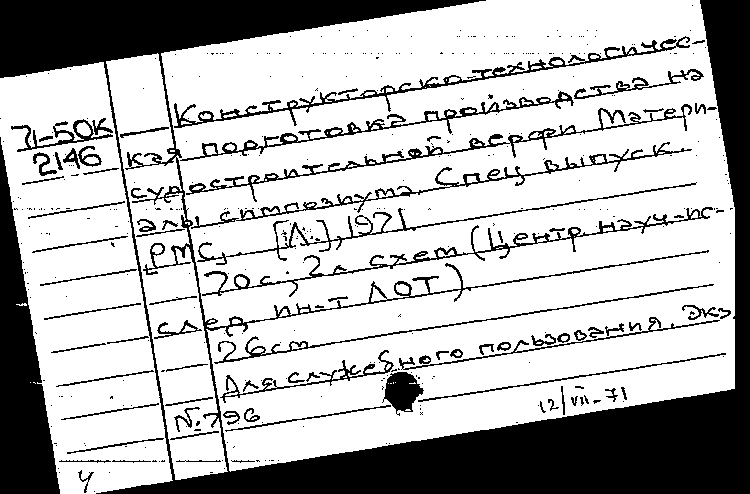 Конструкторско-технологичес-
71-50К
2146
кая подготовка производства на
судостроительной верфи. Матери-
алы симпозиума. Спец. выпуск.
РМС. [Л.], 1971.
70 с.; 2 л. схем (Центр. науч.-ис-
след. ин-т ЛОТ).
26 см.
Для служебного пользования. Экз.
№ 796
12/VII-71
Ч